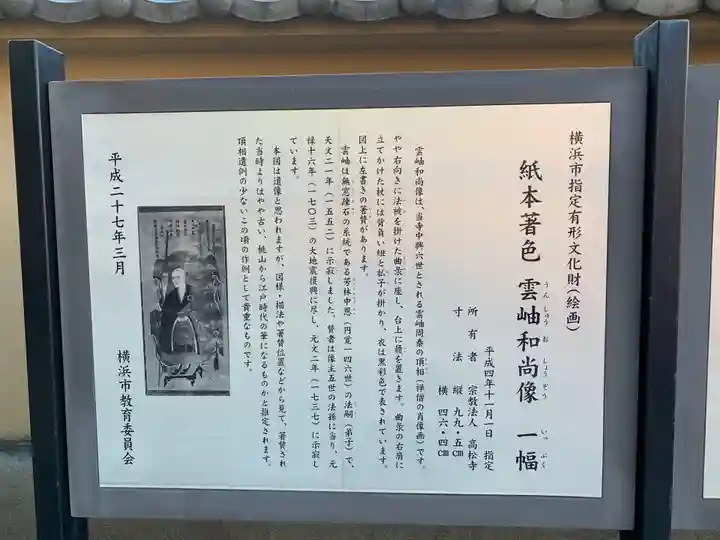 横浜市指定有形文化財(絵画)
紙本著色 雲岫和尚像 一幅
うんしゅうおしょうぞう いっぷく
平成四年十一月一日 指定
所有者 宗教法人 高松寺
寸法 縦 九九・五㎝
横 四六・四㎝
雲岫和尚像は、当寺中興六世とされる雲岫周泰の頂相(禅僧の肖像画)です。
やや右向きに法被を掛けた曲彔に座し、台上に履を置きます。曲彔の右肩に
立てかけた杖には背負い紐と払子が掛かり、衣は黒彩色で表されています。
図上に左書きの著賛があります。
雲岫は無窓疎石の系統である芳林中恩(円覚一四六世)の法嗣(弟子)で、
天文二一年(一五五二)に示寂しました。賛者は像主五世の法孫に当り、元
禄十六年(一七〇三)の大地震復興に尽し、元文二年(一七三七)に示寂し
ています。
本図は遺像と思われますが、図様・描法や著賛位置などから見て、著賛され
た当時よりはやや古い、桃山から江戸時代の筆になるものかと推定されます。
頂相遺例の少ないこの頃の作例として貴重なものです。
平成二十七年三月
横浜市教育委員会